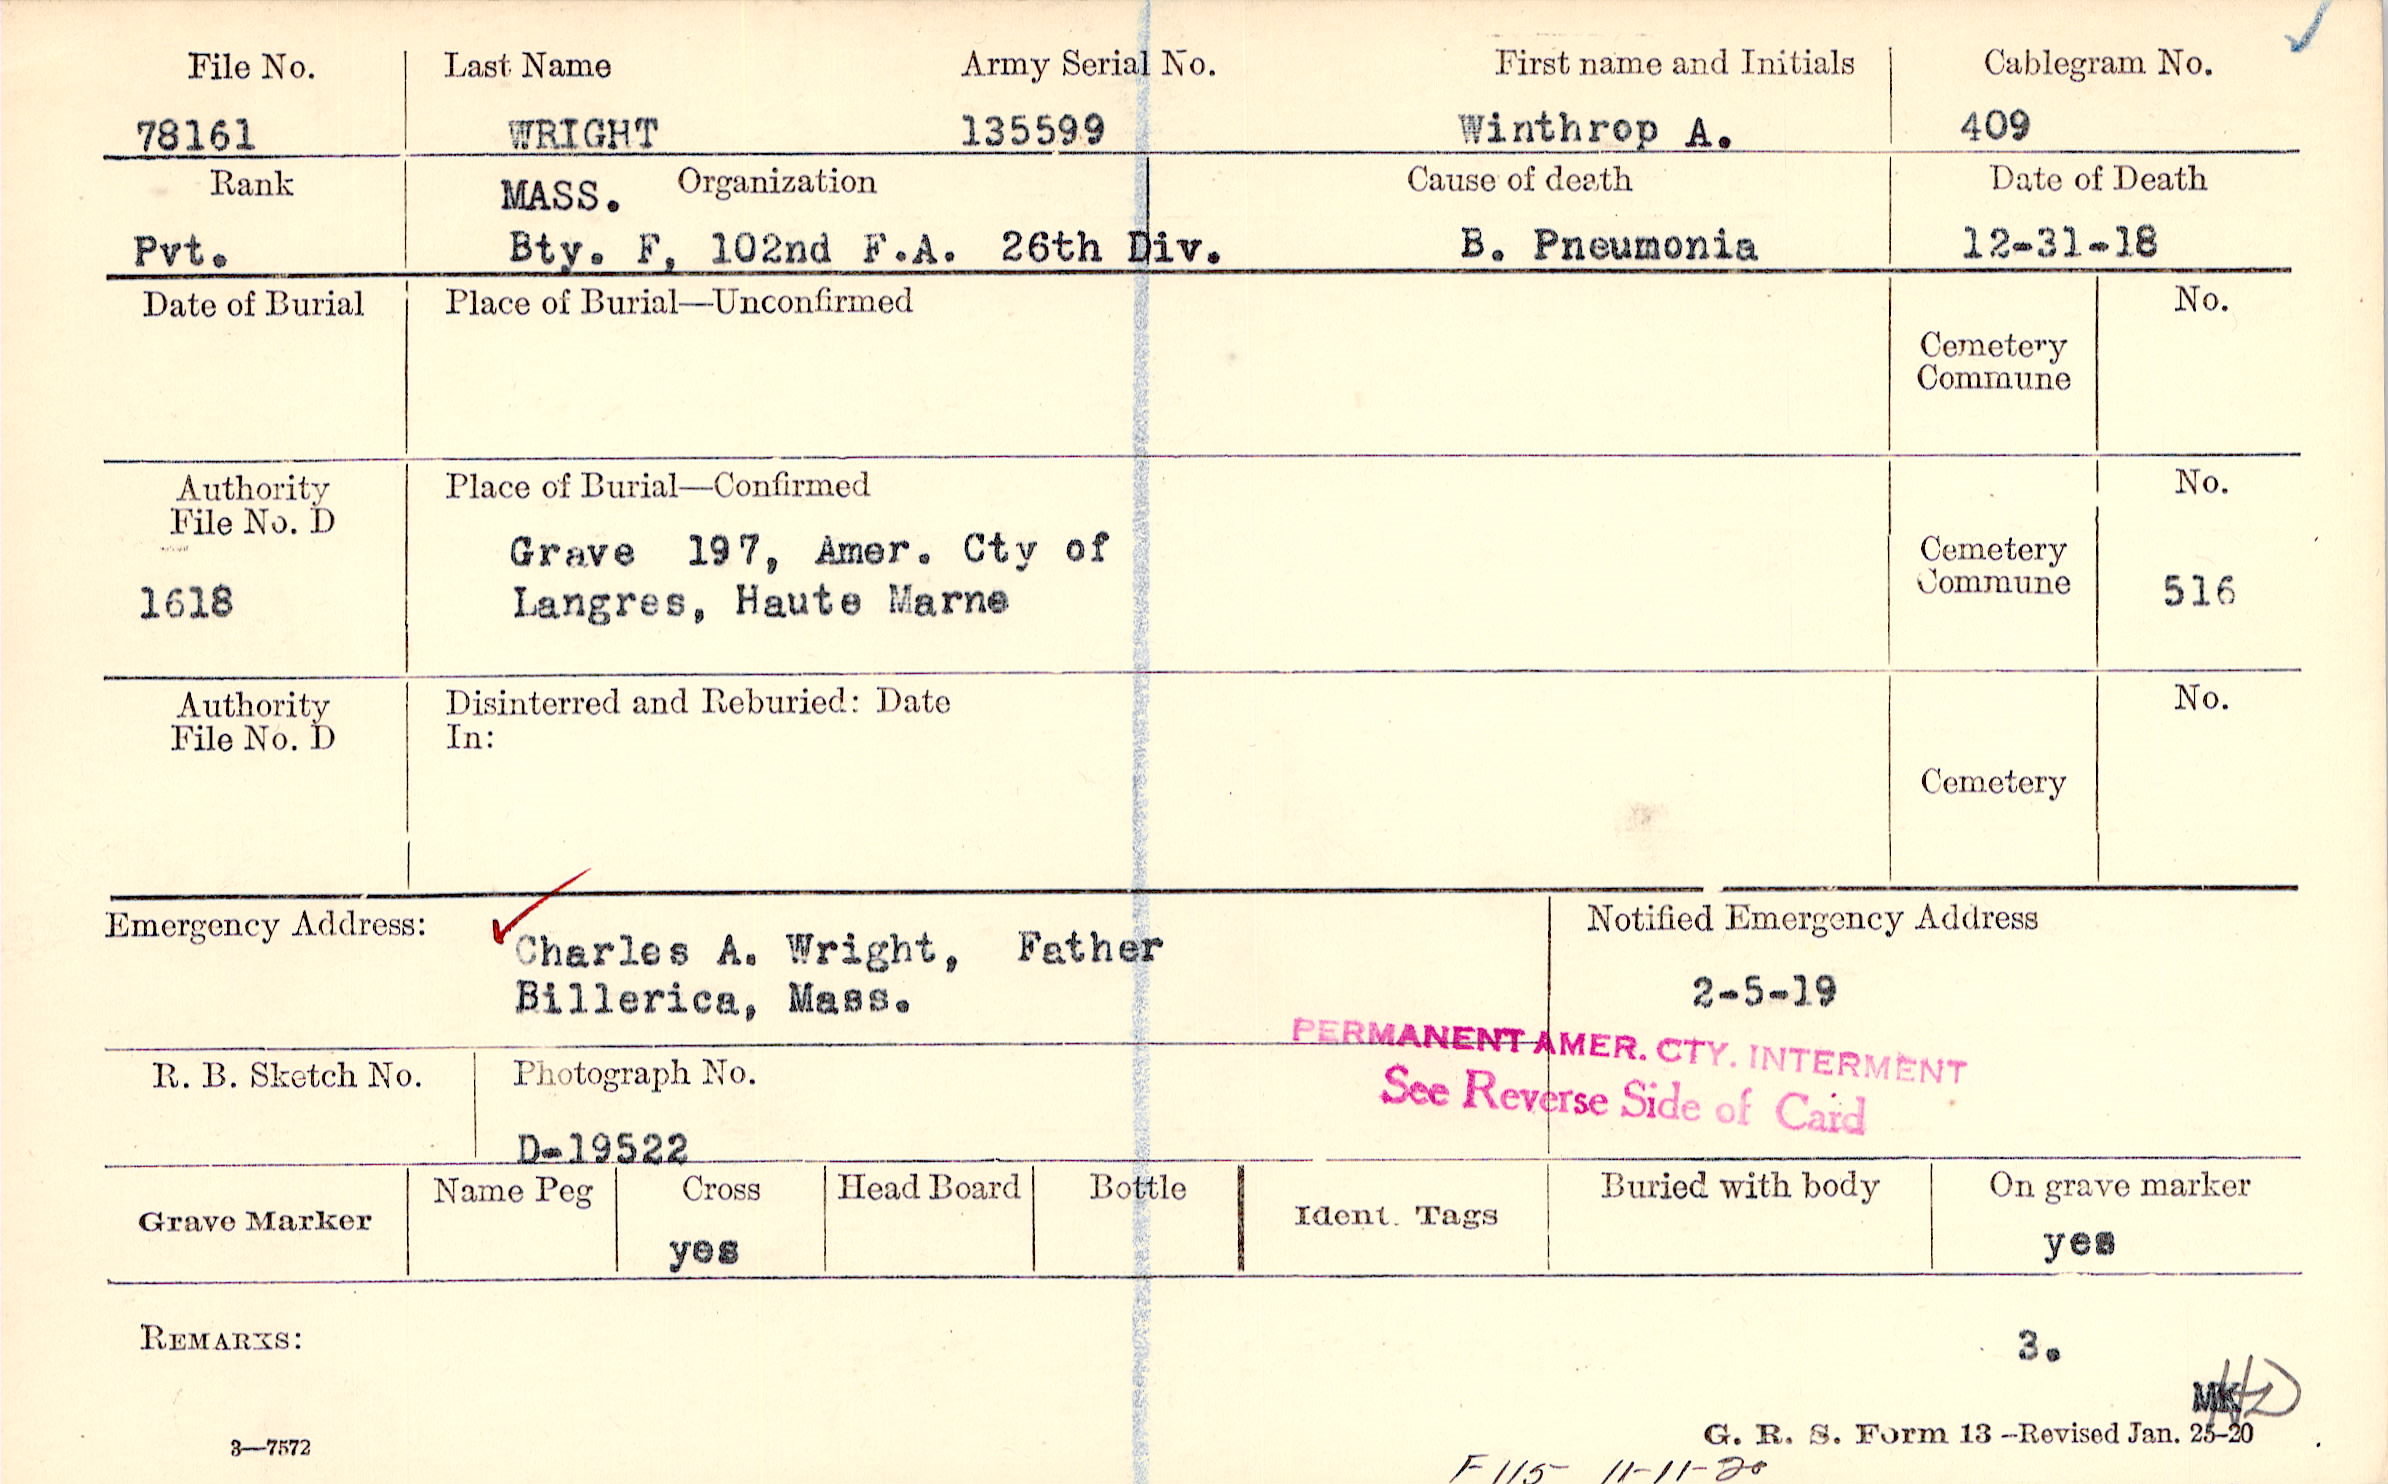 File No. Last Name Army Serial No. First name and Initials Cablegram No.
78161 WRIGHT 135599 Winthrop A. 409
Rank MASS. Organization Cause of death Date of Death
Pvt. Bty. F, 102nd F.A. 26th Div. B. Pneumonia 12-31-18
Date of Burial Place of Burial—Unconfirmed No.
Cemetery
Commune
Authority Place of Burial—Confirmed No.
File No. D
Grave 197, Amer. Cty of Cemetery
1618 Langres, Haute Marne Commune 516
Authority Disinterred and Reburied: Date No.
File No. D In:
Cemetery
Emergency Address: Notified Emergency Address
Charles A. Wright, Father
Billerica, Mass. 2-5-19
PERMANENT AMER. CTY. INTERMENT
See Reverse Side of Card
R. B. Sketch No. Photograph No.
D-19522
Grave Marker Name Peg Cross Head Board Bottle Ident. Tags Buried with body On grave marker
yes yes
REMARKS: 3.
MK HD
3—7572 G. R. S. Form 13—Revised Jan. 25-20
F115 11-11-20